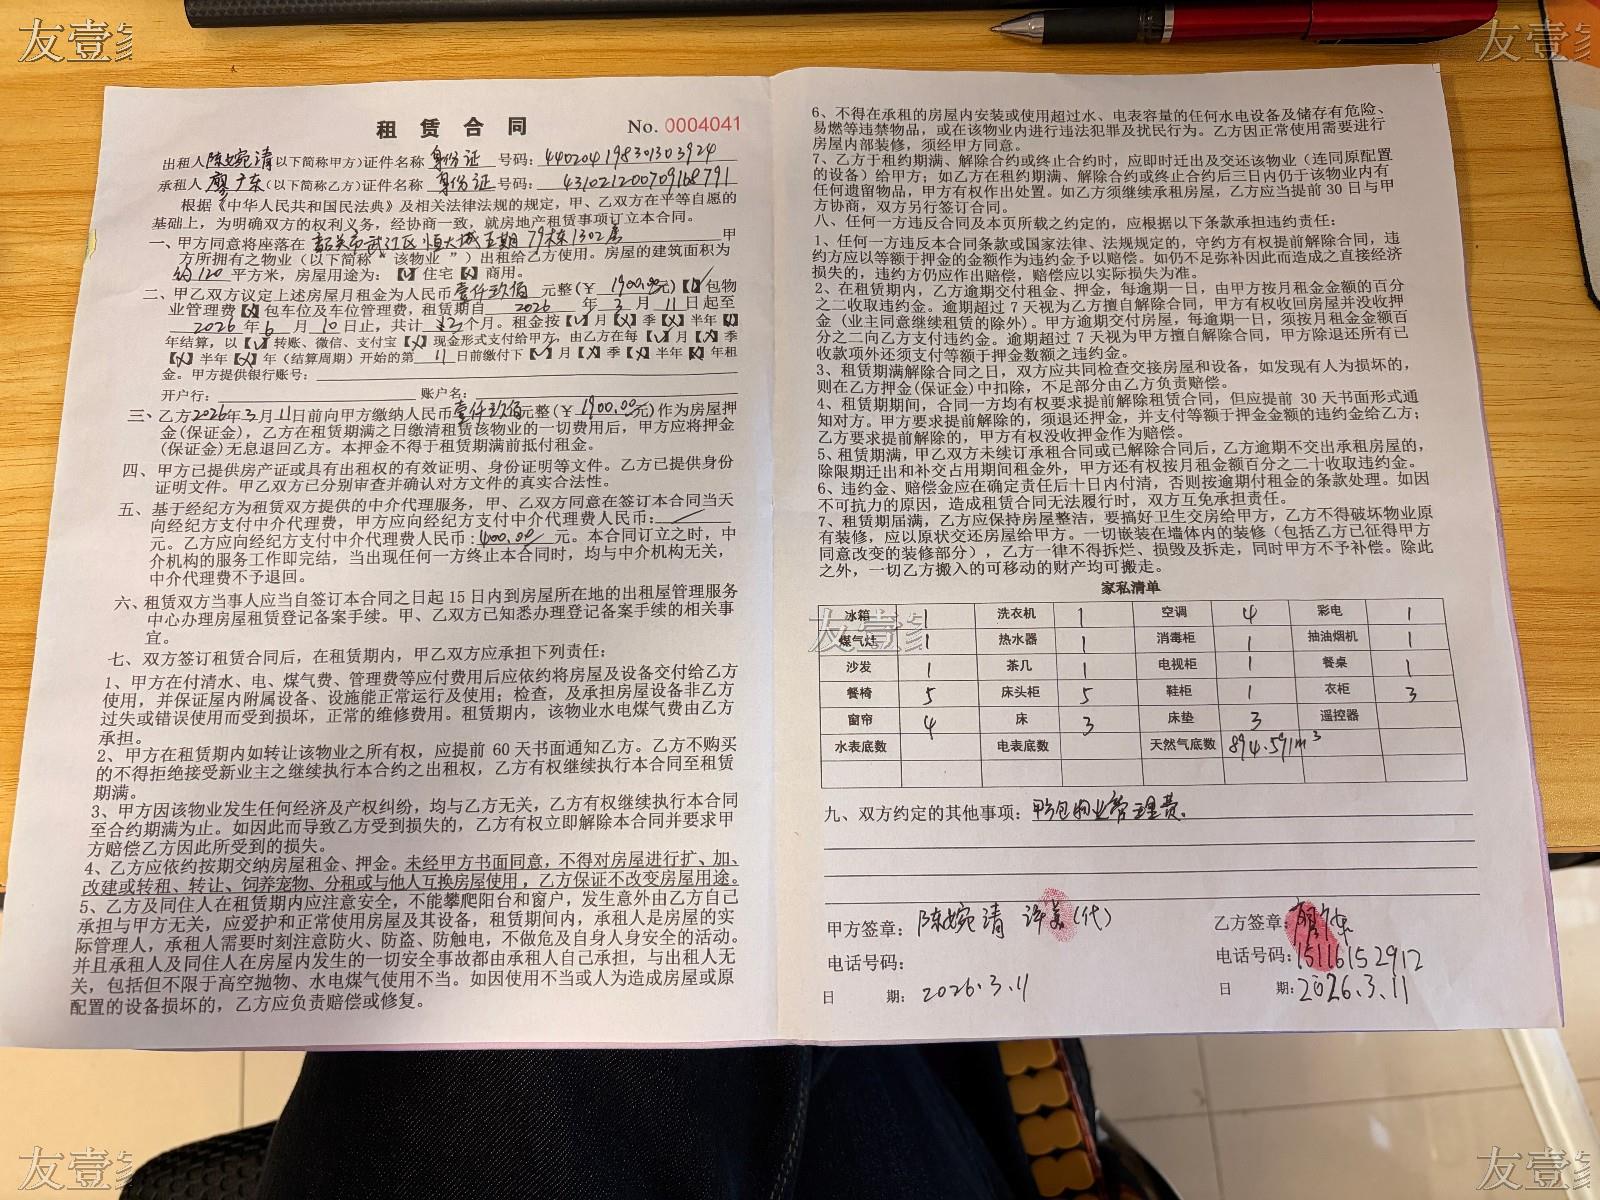 友壹家
友壹家
租 赁 合 同 No. 0004041
出租人陈婉清(以下简称甲方)证件名称 身份证 号码：440204198301303924
承租人 廖广东(以下简称乙方)证件名称 身份证 号码：431021200709168791
根据《中华人民共和国民法典》及相关法律法规的规定，甲、乙双方在平等自愿的
基础上，为明确双方的权利义务，经协商一致，就房地产租赁事项订立本合同。
一、甲方同意将座落在 韶关市武江区恒大城五期79栋1302房 甲
方所拥有之物业（以下简称“该物业”）出租给乙方使用。房屋的建筑面积为
约120 平方米，房屋用途为：【√】住宅【×】商用。
二、甲乙双方议定上述房屋月租金为人民币壹仟玖佰 元整(￥ 1900.00元)【√】包物
业管理费【×】包车位及车位管理费，租赁期自 2026 年 3 月 11 日起至
2026 年 6 月 10 日止，共计 3 个月。租金按【√】月【×】季【×】半年【×】
年结算，以【√】转账、微信、支付宝【×】现金形式支付给甲方，由乙方在每【√】月【×】季
【×】半年【×】年（结算周期）开始的第 11 日前缴付下【√】月【×】季【×】半年【×】年租
金。甲方提供银行账号：
开户行： 账户名：
三、乙方2026年3月11日前向甲方缴纳人民币壹仟玖佰元整(￥ 1900.00元)作为房屋押
金(保证金)，乙方在租赁期满之日缴清租赁该物业的一切费用后，甲方应将押金
(保证金)无息退回乙方。本押金不得于租赁期满前抵付租金。
四、甲方已提供房产证或具有出租权的有效证明、身份证明等文件。乙方已提供身份
证明文件。甲乙双方已分别审查并确认对方文件的真实合法性。
五、基于经纪方为租赁双方提供的中介代理服务，甲、乙双方同意在签订本合同当天
向经纪方支付中介代理费，甲方应向经纪方支付中介代理费人民币：/
元。乙方应向经纪方支付中介代理费人民币：400.00 元。本合同订立之时，中
介机构的服务工作即完结，当出现任何一方终止本合同时，均与中介机构无关，
中介代理费不予退回。
六、租赁双方当事人应当自签订本合同之日起 15 日内到房屋所在地的出租屋管理服务
中心办理房屋租赁登记备案手续。甲、乙双方已知悉办理登记备案手续的相关事
宜。
七、双方签订租赁合同后，在租赁期内，甲乙双方应承担下列责任：
1、甲方在付清水、电、煤气费、管理费等应付费用后应依约将房屋及设备交付给乙方
使用，并保证屋内附属设备、设施能正常运行及使用；检查，及承担房屋设备非乙方
过失或错误使用而受到损坏，正常的维修费用。租赁期内，该物业水电煤气费由乙方
承担。
2、甲方在租赁期内如转让该物业之所有权，应提前 60 天书面通知乙方。乙方不购买
的不得拒绝接受新业主之继续执行本合约之出租权，乙方有权继续执行本合同至租赁
期满。
3、甲方因该物业发生任何经济及产权纠纷，均与乙方无关，乙方有权继续执行本合同
至合约期满为止。如因此而导致乙方受到损失的，乙方有权立即解除本合同并要求甲
方赔偿乙方因此所受到的损失。
4、乙方应依约按期交纳房屋租金、押金。未经甲方书面同意，不得对房屋进行扩、加、
改建或转租、转让、饲养宠物、分租或与他人互换房屋使用，乙方保证不改变房屋用途。
5、乙方及同住人在租赁期内应注意安全，不能攀爬阳台和窗户，发生意外由乙方自己
承担与甲方无关，应爱护和正常使用房屋及其设备，租赁期间内，承租人是房屋的实
际管理人，承租人需要时刻注意防火、防盗、防触电，不做危及自身人身安全的活动。
并且承租人及同住人在房屋内发生的一切安全事故都由承租人自己承担，与出租人无
关，包括但不限于高空抛物、水电煤气使用不当。如因使用不当或人为造成房屋或原
配置的设备损坏的，乙方应负责赔偿或修复。
6、不得在承租的房屋内安装或使用超过水、电表容量的任何水电设备及储存有危险、
易燃等违禁物品，或在该物业内进行违法犯罪及扰民行为。乙方因正常使用需要进行
房屋内部装修，须经甲方同意。
7、乙方于租约期满、解除合约或终止合约时，应即时迁出及交还该物业（连同原配置
的设备）给甲方；如乙方在租约期满、解除合约或终止合约后三日内仍于该物业内有
任何遗留物品，甲方有权作出处置。如乙方须继续承租房屋，乙方应当提前 30 日与甲
方协商，双方另行签订合同。
八、任何一方违反合同及本页所载之约定的，应根据以下条款承担违约责任：
1、任何一方违反本合同条款或国家法律、法规规定的，守约方有权提前解除合同，违
约方应以等额于押金的金额作为违约金予以赔偿。如仍不足弥补因此而造成之直接经济
损失的，违约方仍应作出赔偿，赔偿应以实际损失为准。
2、在租赁期内，乙方逾期交付租金、押金，每逾期一日，由甲方按月租金金额的百分
之二收取违约金。逾期超过 7 天视为乙方擅自解除合同，甲方有权收回房屋并没收押
金（业主同意继续租赁的除外）。甲方逾期交付房屋，每逾期一日，须按月租金金额百
分之二向乙方支付违约金。逾期超过 7 天视为甲方擅自解除合同，甲方除退还所有已
收款项外还须支付等额于押金数额之违约金。
3、租赁期满解除合同之日，双方应共同检查交接房屋和设备，如发现有人为损坏的，
则在乙方押金(保证金)中扣除，不足部分由乙方负责赔偿。
4、租赁期期间，合同一方均有权要求提前解除租赁合同，但应提前 30 天书面形式通
知对方。甲方要求提前解除的，须退还押金，并支付等额于押金金额的违约金给乙方；
乙方要求提前解除的，甲方有权没收押金作为赔偿。
5、租赁期满，甲乙双方未续订承租合同或已解除合同后，乙方逾期不交出承租房屋的，
除限期迁出和补交占用期间租金外，甲方还有权按月租金额百分之二十收取违约金。
6、违约金、赔偿金应在确定责任后十日内付清，否则按逾期付租金的条款处理。如因
不可抗力的原因，造成租赁合同无法履行时，双方互免承担责任。
7、租赁期届满，乙方应保持房屋整洁，要搞好卫生交房给甲方，乙方不得破坏物业原
有装修，应以原状交还房屋给甲方。一切嵌装在墙体内的装修（包括乙方已征得甲方
同意改变的装修部分），乙方一律不得拆烂、损毁及拆走，同时甲方不予补偿。除此
之外，一切乙方搬入的可移动的财产均可搬走。
家私清单
冰箱 1 洗衣机 1 空调 4 彩电 1
煤气灶 1 热水器 1 消毒柜 1 抽油烟机 1
沙发 1 茶几 1 电视柜 1 餐桌 1
餐椅 5 床头柜 5 鞋柜 1 衣柜 3
窗帘 4 床 3 床垫 3 遥控器
水表底数 电表底数 天然气底数 894.591m³
友壹家
九、双方约定的其他事项：甲方包物业管理费。
甲方签章：陈婉清 许美(代) 乙方签章：廖广东
电话号码： 电话号码：15116152912
日 期：2026.3.11 日 期：2026.3.11
友壹家
友壹家